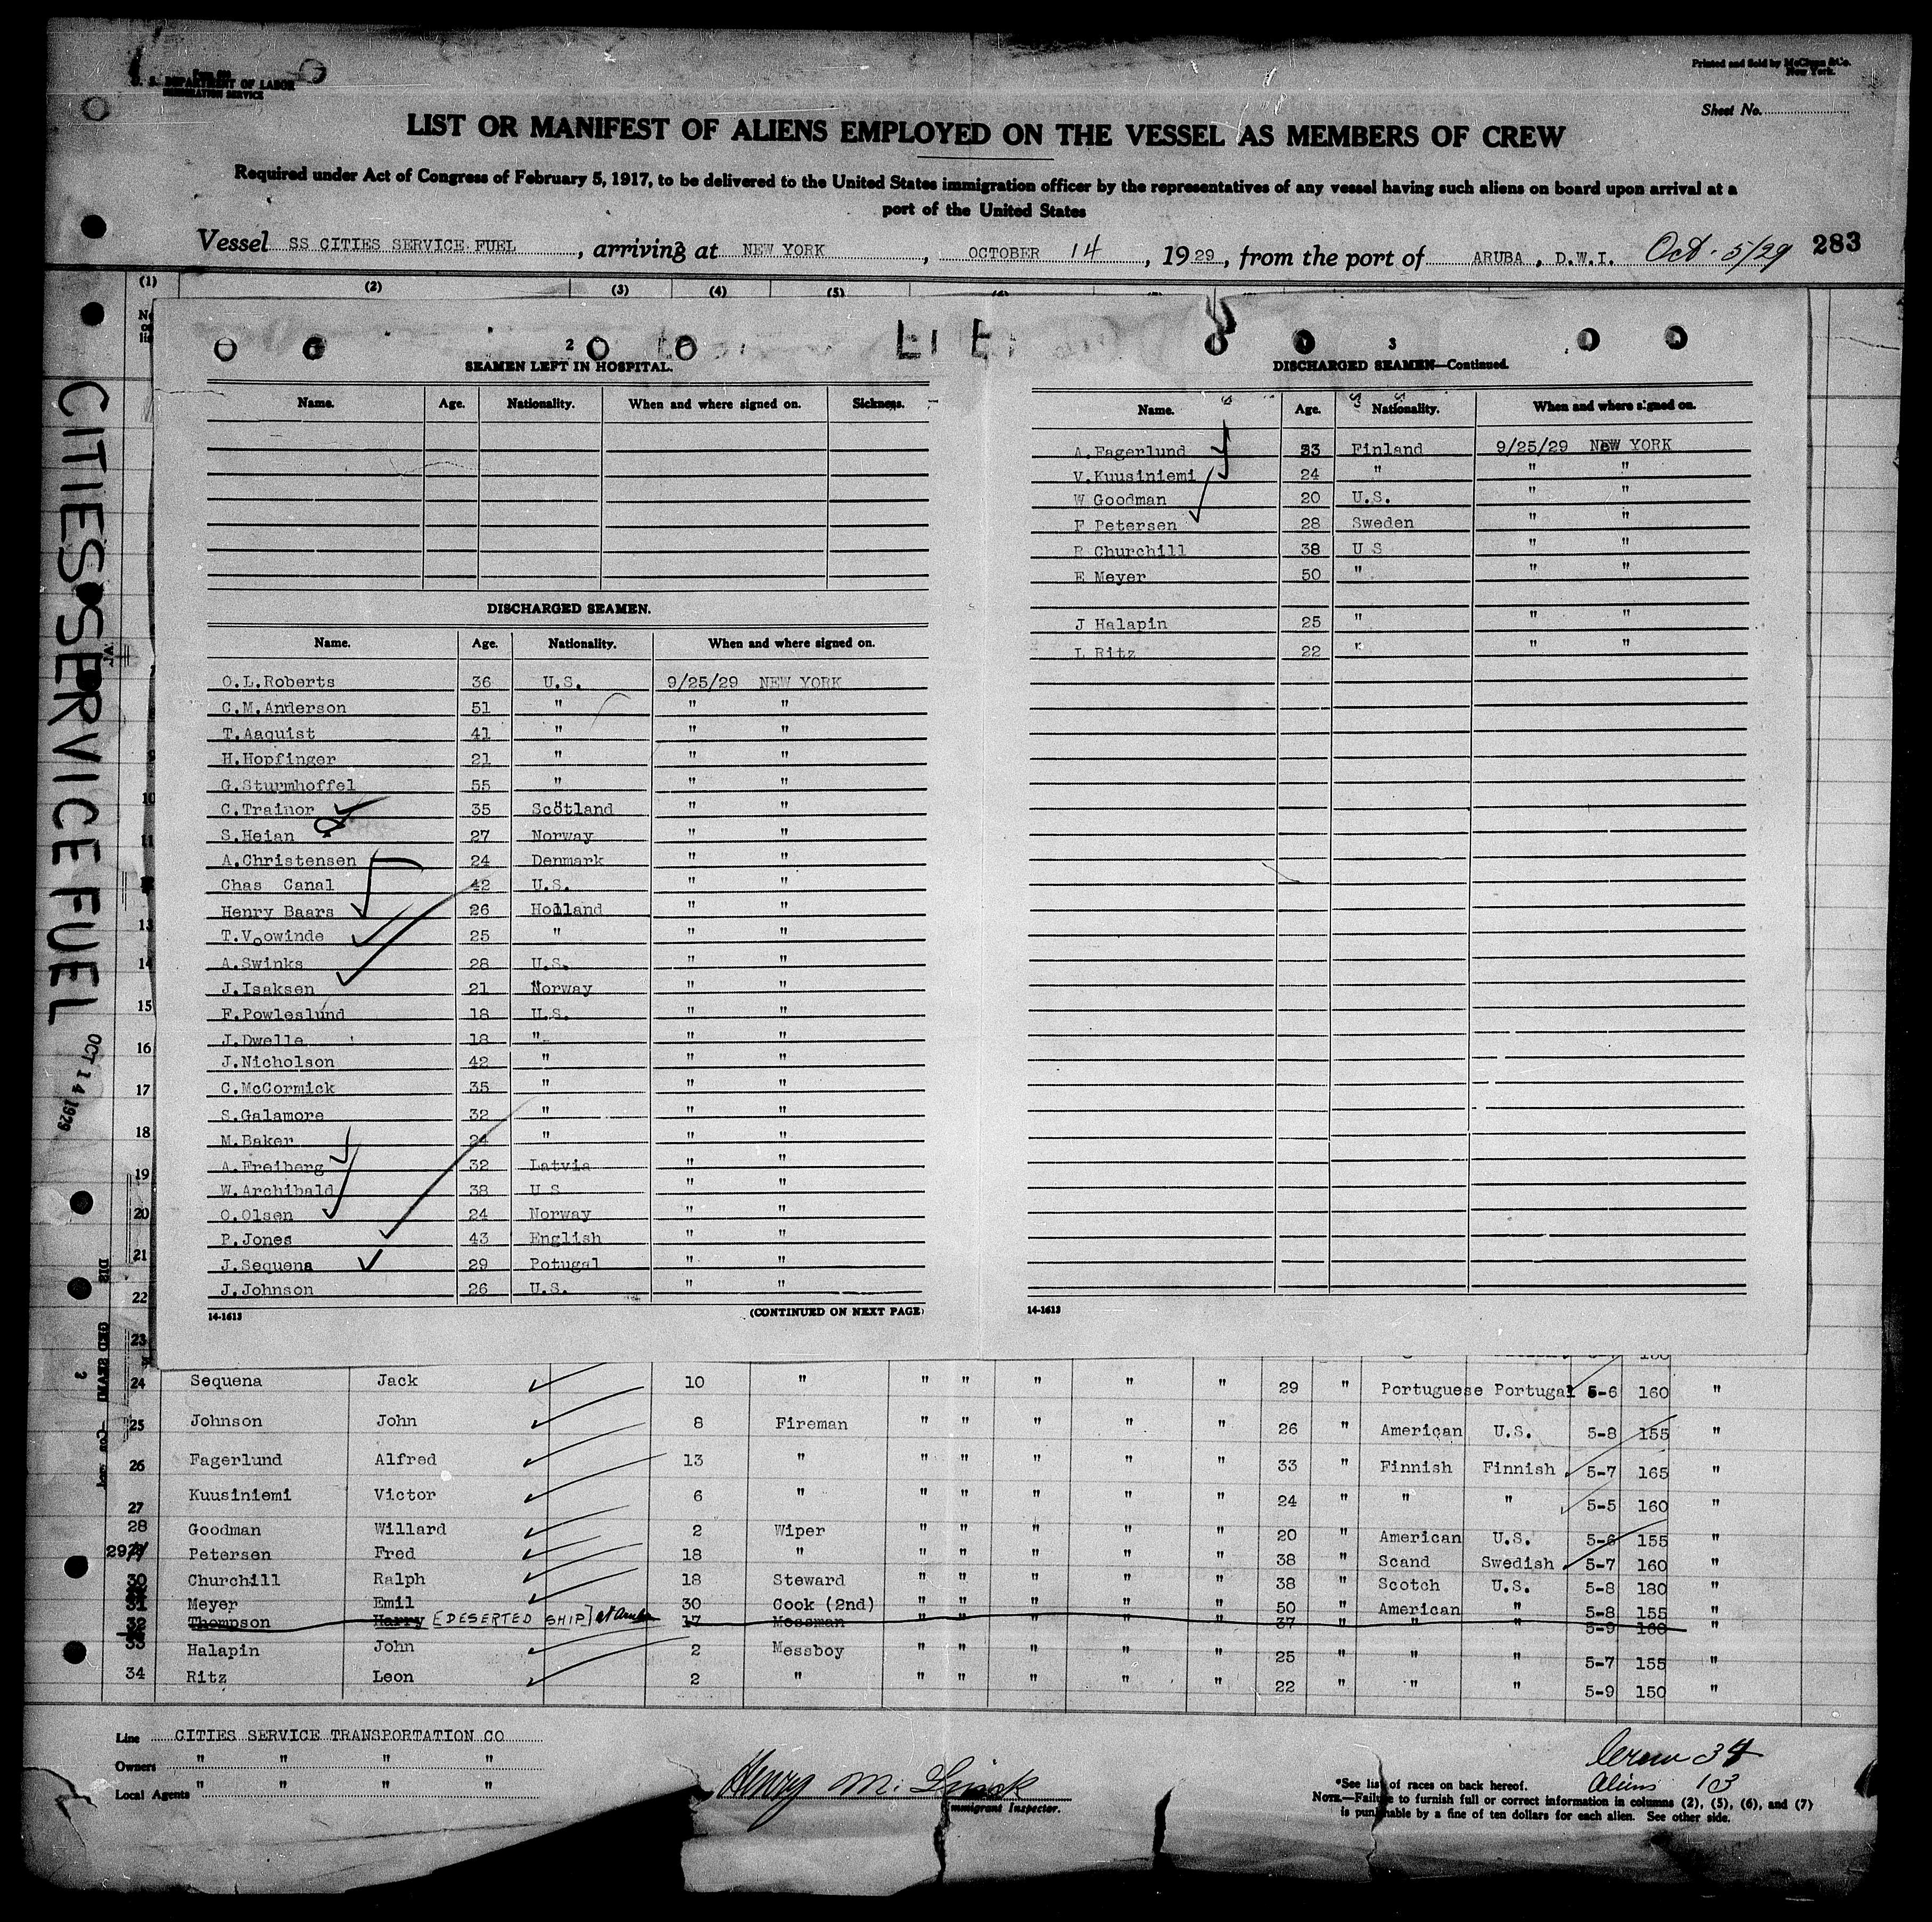 U. S. DEPARTMENT OF LABOR
IMMIGRATION SERVICE
Printed and Sold by
New York.
Sheet No.
LIST OR MANIFEST OF ALIENS EMPLOYED ON THE VESSEL AS MEMBERS OF CREW
Required under Act of Congress of February 5, 1917, to be delivered to the United States immigration officer by the representatives of any vessel having such aliens on board upon arrival at a
port of the United States
Vessel SS CITIES SERVICE FUEL, arriving at NEW YORK, OCTOBER 14, 1929, from the port of ARUBA, D.W.I. Oct. 5/29 283
(1) (2) (3) (4) (5)
CITIES SERVICE FUEL
OCT 14 1929
2
SEAMEN LEFT IN HOSPITAL.
Name. Age. Nationality. When and where signed on. Sickness.
DISCHARGED SEAMEN.
Name. Age. Nationality. When and where signed on.
O.L.Roberts 36 U.S. 9/25/29 NEW YORK
C.M.Anderson 51 " " "
T.Aaquist 41 " " "
H.Hopfinger 21 " " "
G.Sturmhoffel 55 " " "
C.Trainor 35 Scotland " "
S.Heian 27 Norway " "
A.Christensen 24 Denmark " "
Chas Canal 42 U.S. " "
Henry Baars 26 Holland " "
T.Voowinde 25 " " "
A.Swinks 28 U.S. " "
J.Isaksen 21 Norway " "
F.Powleslund 18 U.S. " "
J.Dwelle 18 " " "
J.Nicholson 42 " " "
C.McCormick 35 " " "
S.Galamore 32 " " "
M.Baker 24 " " "
A.Freiberg 32 Latvia " "
W.Archibald 38 U S " "
O.Olsen 24 Norway " "
P.Jones 43 English " "
J.Sequena 29 Potugal " "
J.Johnson 26 U.S. " "
14-1613 (CONTINUED ON NEXT PAGE)
3
DISCHARGED SEAMEN—Continued.
Name. Age. Nationality. When and where signed on.
A.Fagerlund 33 Finland 9/25/29 NEW YORK
V.Kuusiniemi 24 " " "
W Goodman 20 U.S. " "
F Petersen 28 Sweden " "
R Churchill 38 U S " "
E Meyer 50 " " "
J Halapin 25 " " "
L Ritz 22 " " "
14-1613
10
11
13
14
15
16
17
18
19
20
21
22
23
24 Sequena Jack 10 " " " " " " 29 " Portuguese Portugal 5-6 160 "
25 Johnson John 8 Fireman " " " " " 26 " American U.S. 5-8 155 "
26 Fagerlund Alfred 13 " " " " " " 33 " Finnish Finnish 5-7 165 "
27 Kuusiniemi Victor 6 " " " " " " 24 " " " 5-5 160 "
28 Goodman Willard 2 Wiper " " " " " 20 " American U.S. 5-6 155 "
29 Petersen Fred 18 " " " " " " 38 " Scand Swedish 5-7 160 "
30 Churchill Ralph 18 Steward " " " " " 38 " Scotch U.S. 5-8 180 "
31 Meyer Emil 30 Cook (2nd) " " " " " 50 " American " 5-8 155 "
32 Thompson Harry [DESERTED SHIP] at Aruba 17 Messman " " " " " 37 " " " 5-9 160 "
33 Halapin John 2 Messboy " " " " " 25 " " " 5-7 155 "
34 Ritz Leon 2 " " " " " " 22 " " " 5-9 150 "
Line CITIES SERVICE TRANSPORTATION CO
Owners " " " "
Local Agents " " " "
Henry M.
Immigrant Inspector.
Crew 34
Aliens 13
*See list of races on back hereof.
NOTE.—Failure to furnish full or correct information in columns (2), (5), (6), and (7)
is punishable by a fine of ten dollars for each alien. See other side.